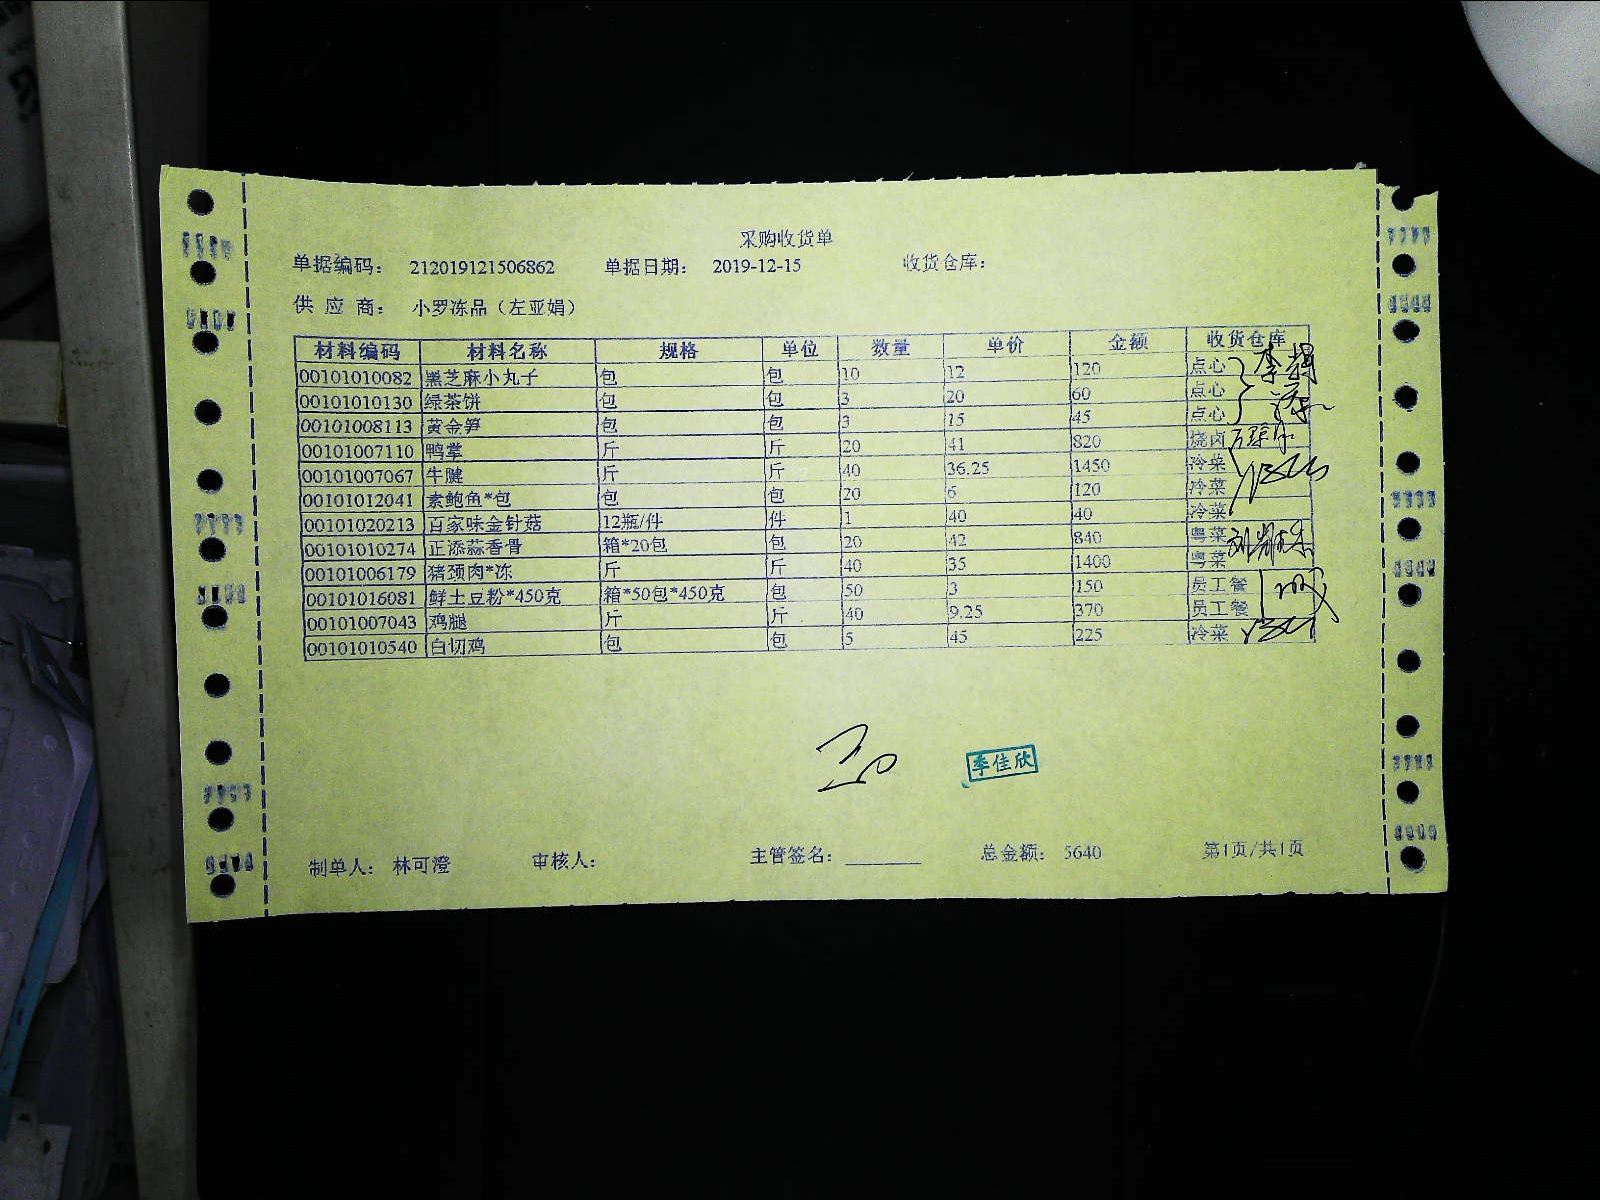 采购收货单
单据编码： 212019121506862 单据日期： 2019-12-15 收货仓库：
供 应 商： 小罗冻品（左亚娟）
材料编码 材料名称 规格 单位 数量 单价 金额 收货仓库
00101010082 黑芝麻小丸子 包 包 10 12 120 点心
00101010130 绿茶饼 包 包 3 20 60 点心
00101008113 黄金笋 包 包 3 15 45 点心
00101007110 鸭掌 斤 斤 20 41 820 烧卤
00101007067 牛腱 斤 斤 40 36.25 1450 冷菜
00101012041 素鲍鱼*包 包 包 20 6 120 冷菜
00101020213 百家味金针菇 12瓶/件 件 1 40 40 冷菜
00101010274 正添蒜香骨 箱*20包 包 20 42 840 粤菜
00101006179 猪颈肉*冻 斤 斤 40 35 1400 粤菜
00101016081 鲜土豆粉*450克 箱*50包*450克 包 50 3 150 员工餐
00101007043 鸡腿 斤 斤 40 9.25 370 员工餐
00101010540 白切鸡 包 包 5 45 225 冷菜
李佳欣
制单人： 林可澄 审核人： 主管签名： 总金额： 5640 第1页/共1页